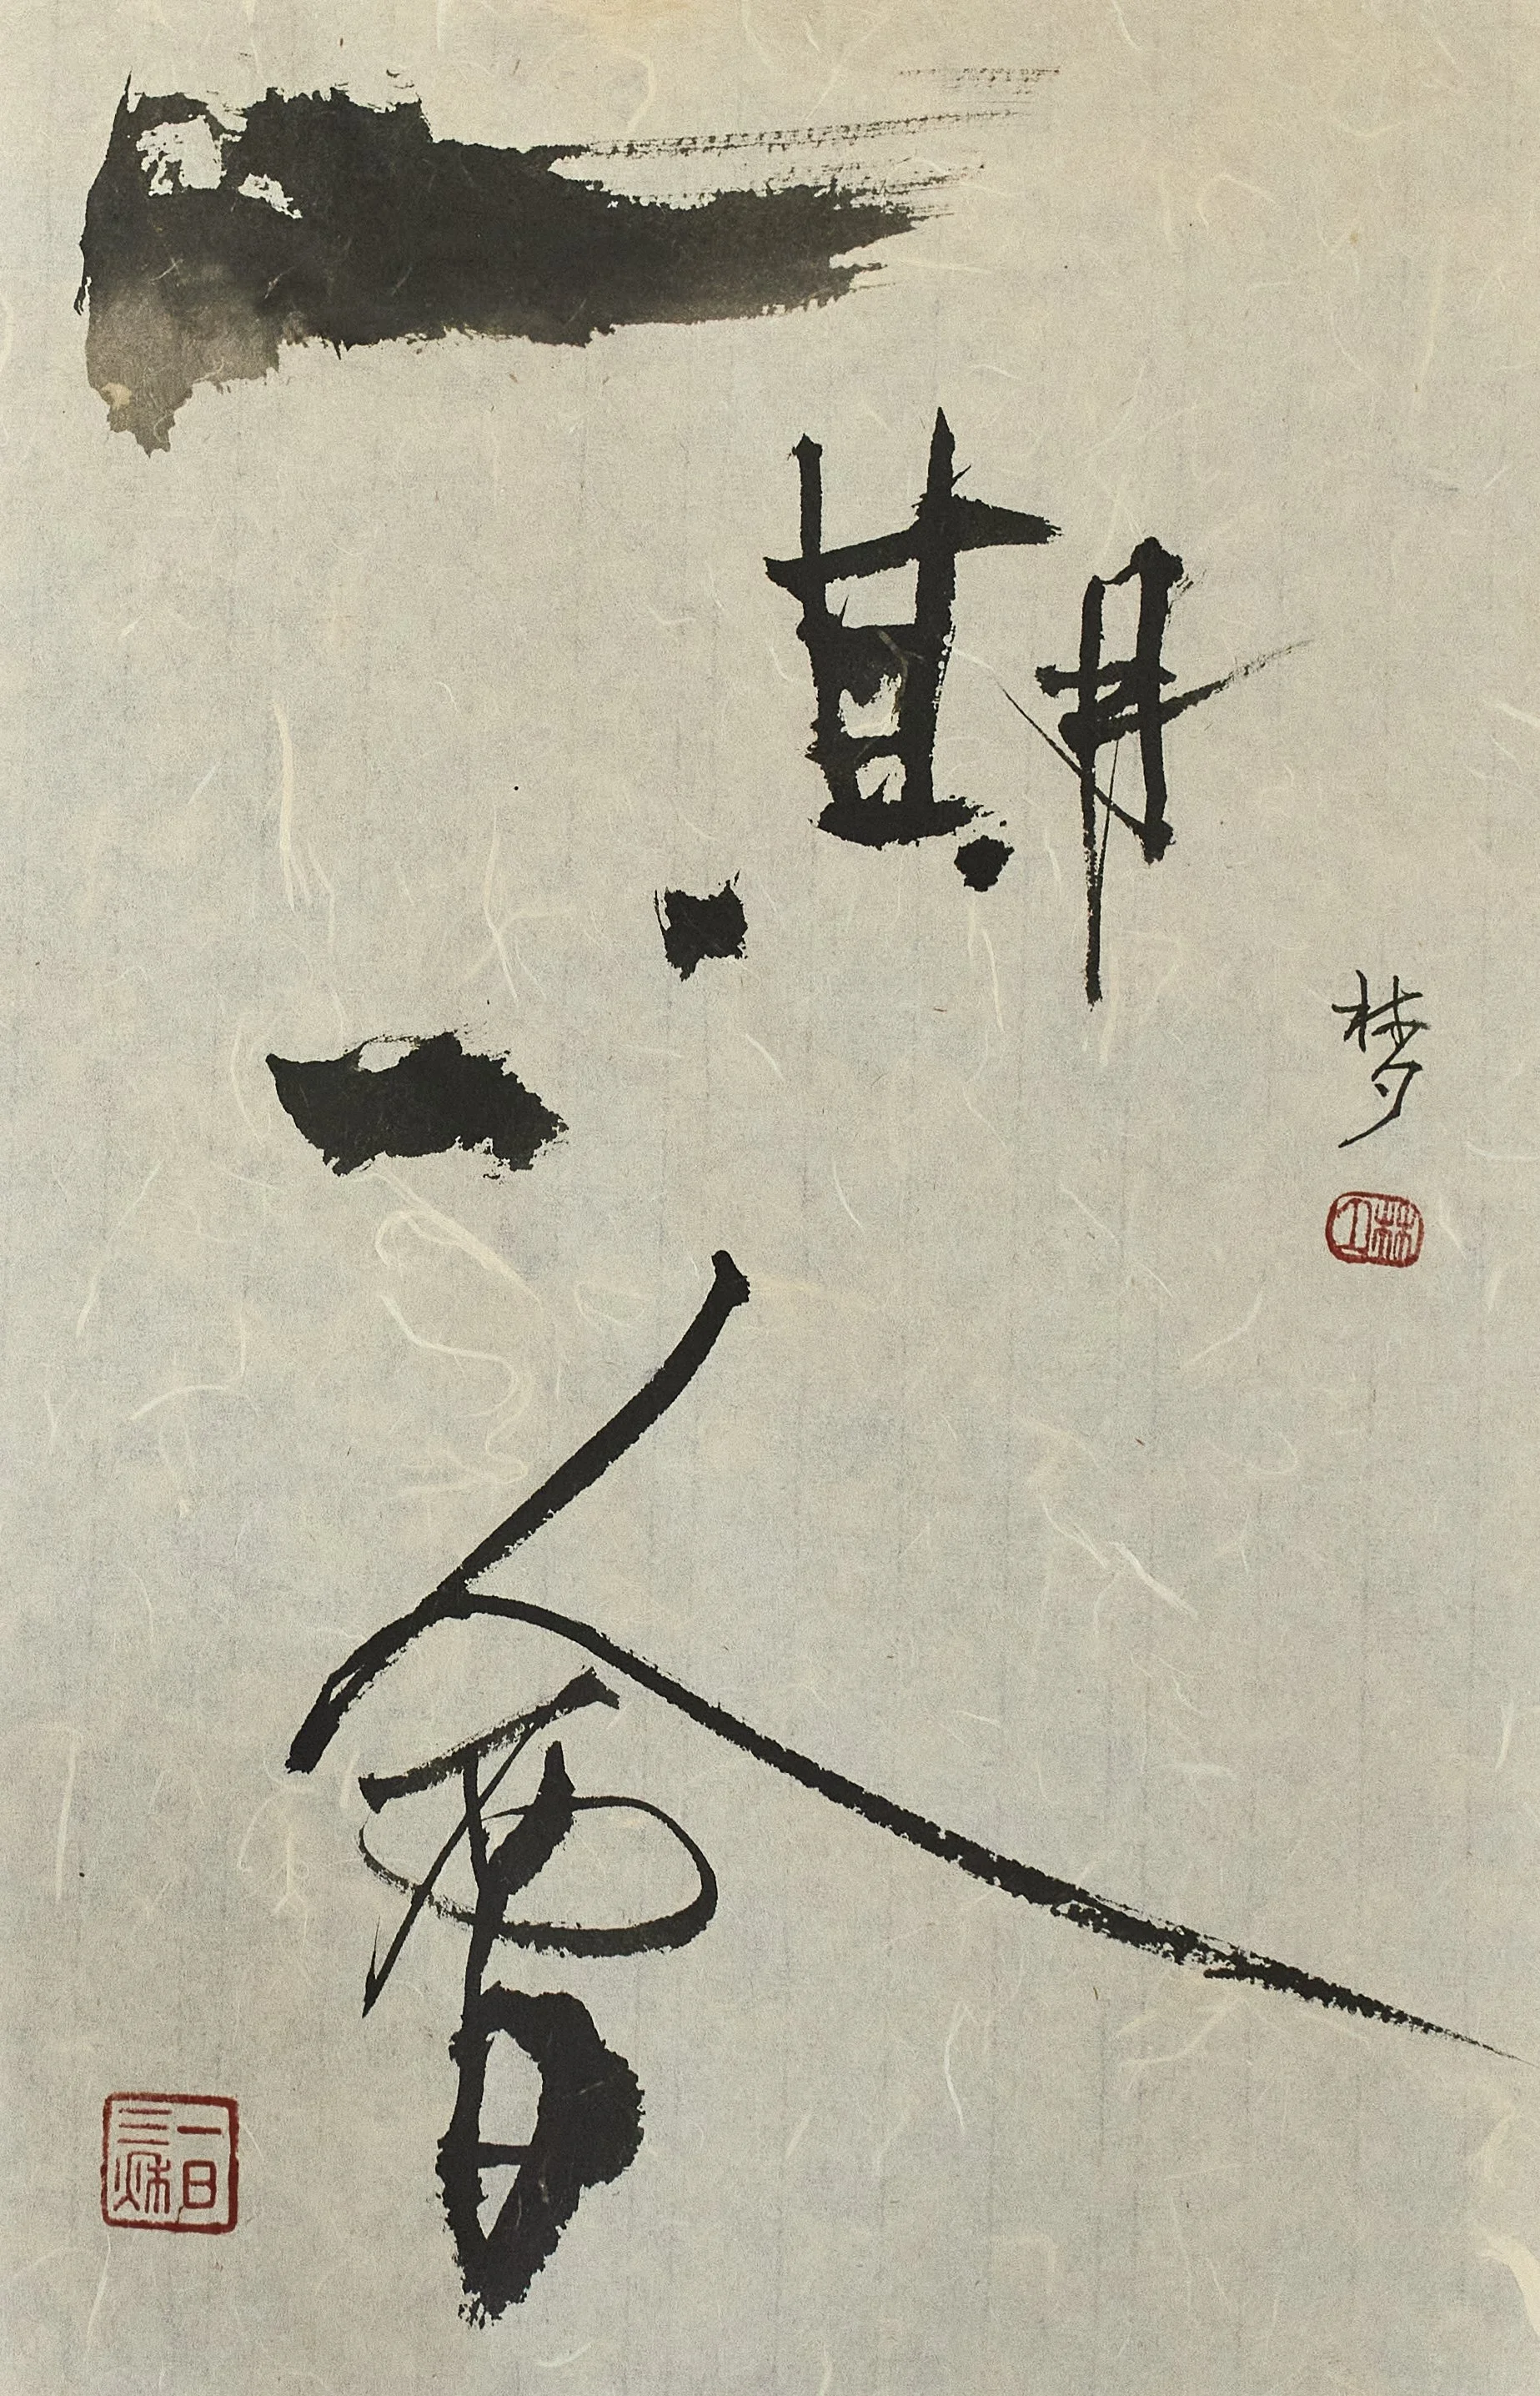 一期
一會
梦
一日
三秋